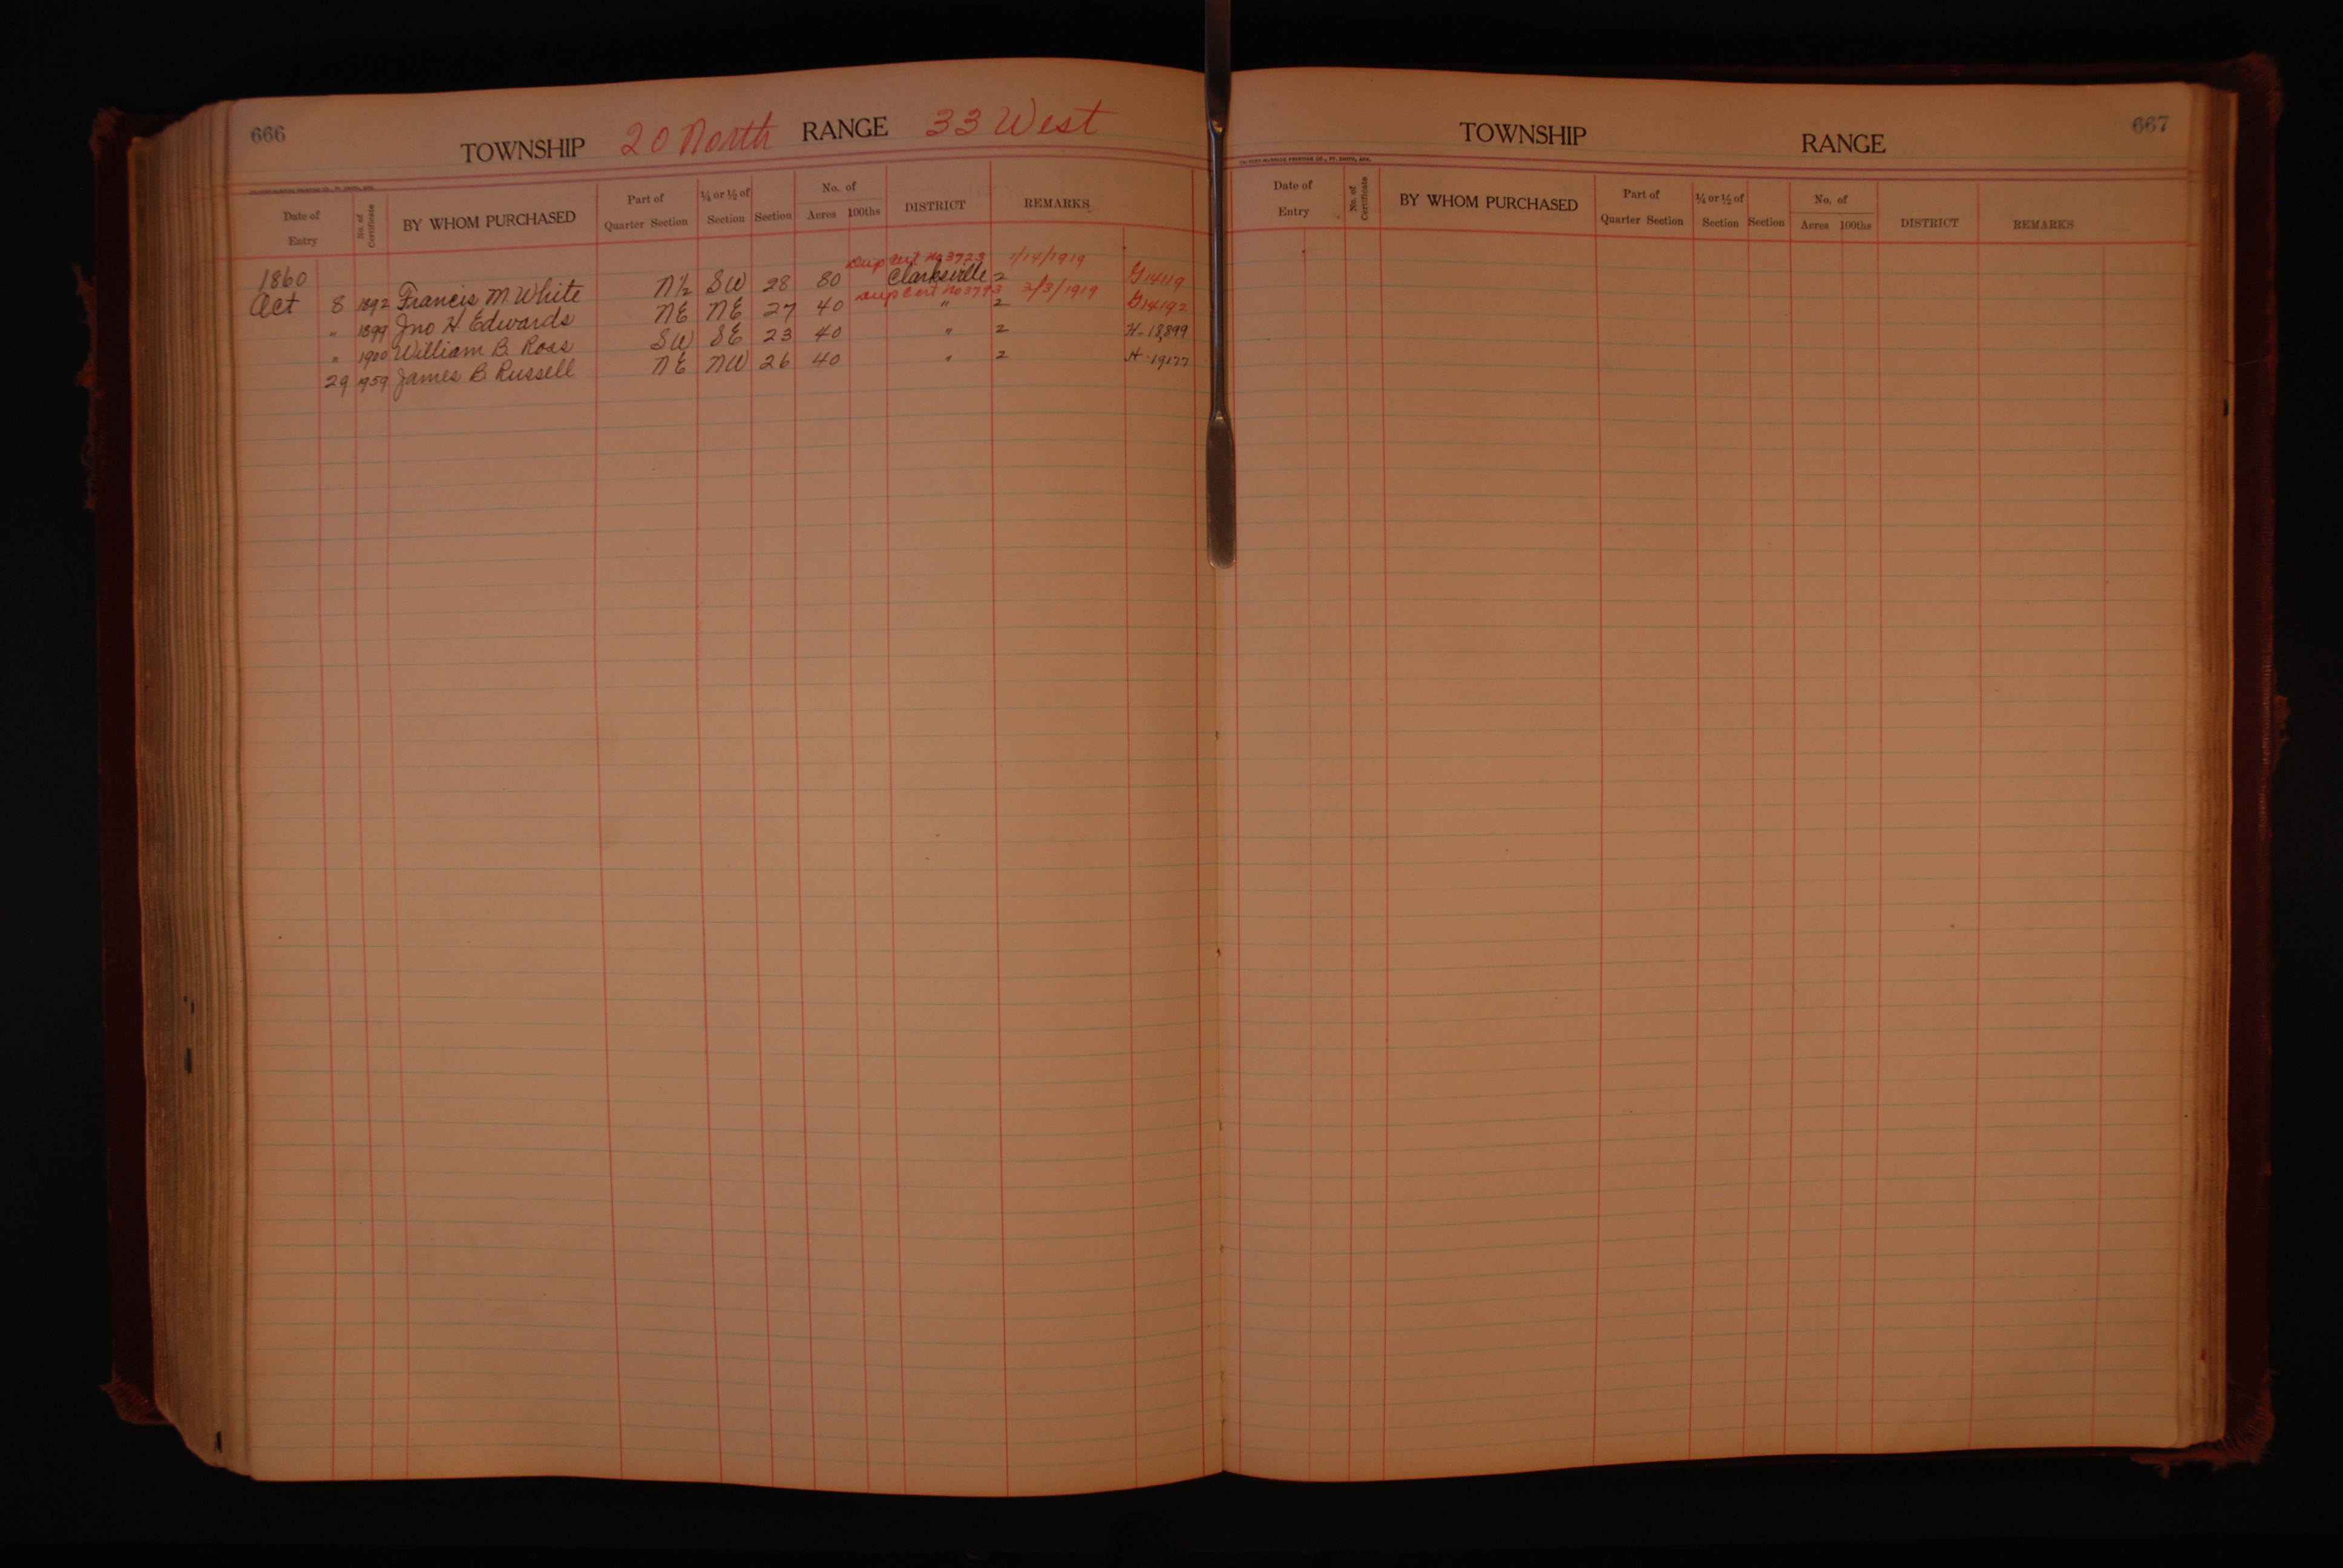 666
TOWNSHIP 20 North RANGE 33 West
Date of Entry No. of Certificate BY WHOM PURCHASED Part of Quarter Section ¼ or ½ of Section Section No. of Acres 100ths DISTRICT REMARKS
Dup Cert No 3723 1/14/1919
1860
Oct 8 1892 Francis M. White N½ SW 28 80 Clarksville 2 G14119
Dup Cert No 3793 3/3/1919
" 1899 Jno H. Edwards NE NE 27 40 " 2 G14192
" 1900 William B. Ross SW SE 23 40 " 2 H-18,899
29 1959 James B. Russell NE NW 26 40 " 2 H-19177
667
TOWNSHIP RANGE
Date of Entry No. of Certificate BY WHOM PURCHASED Part of Quarter Section ¼ or ½ of Section Section No. of Acres 100ths DISTRICT REMARKS